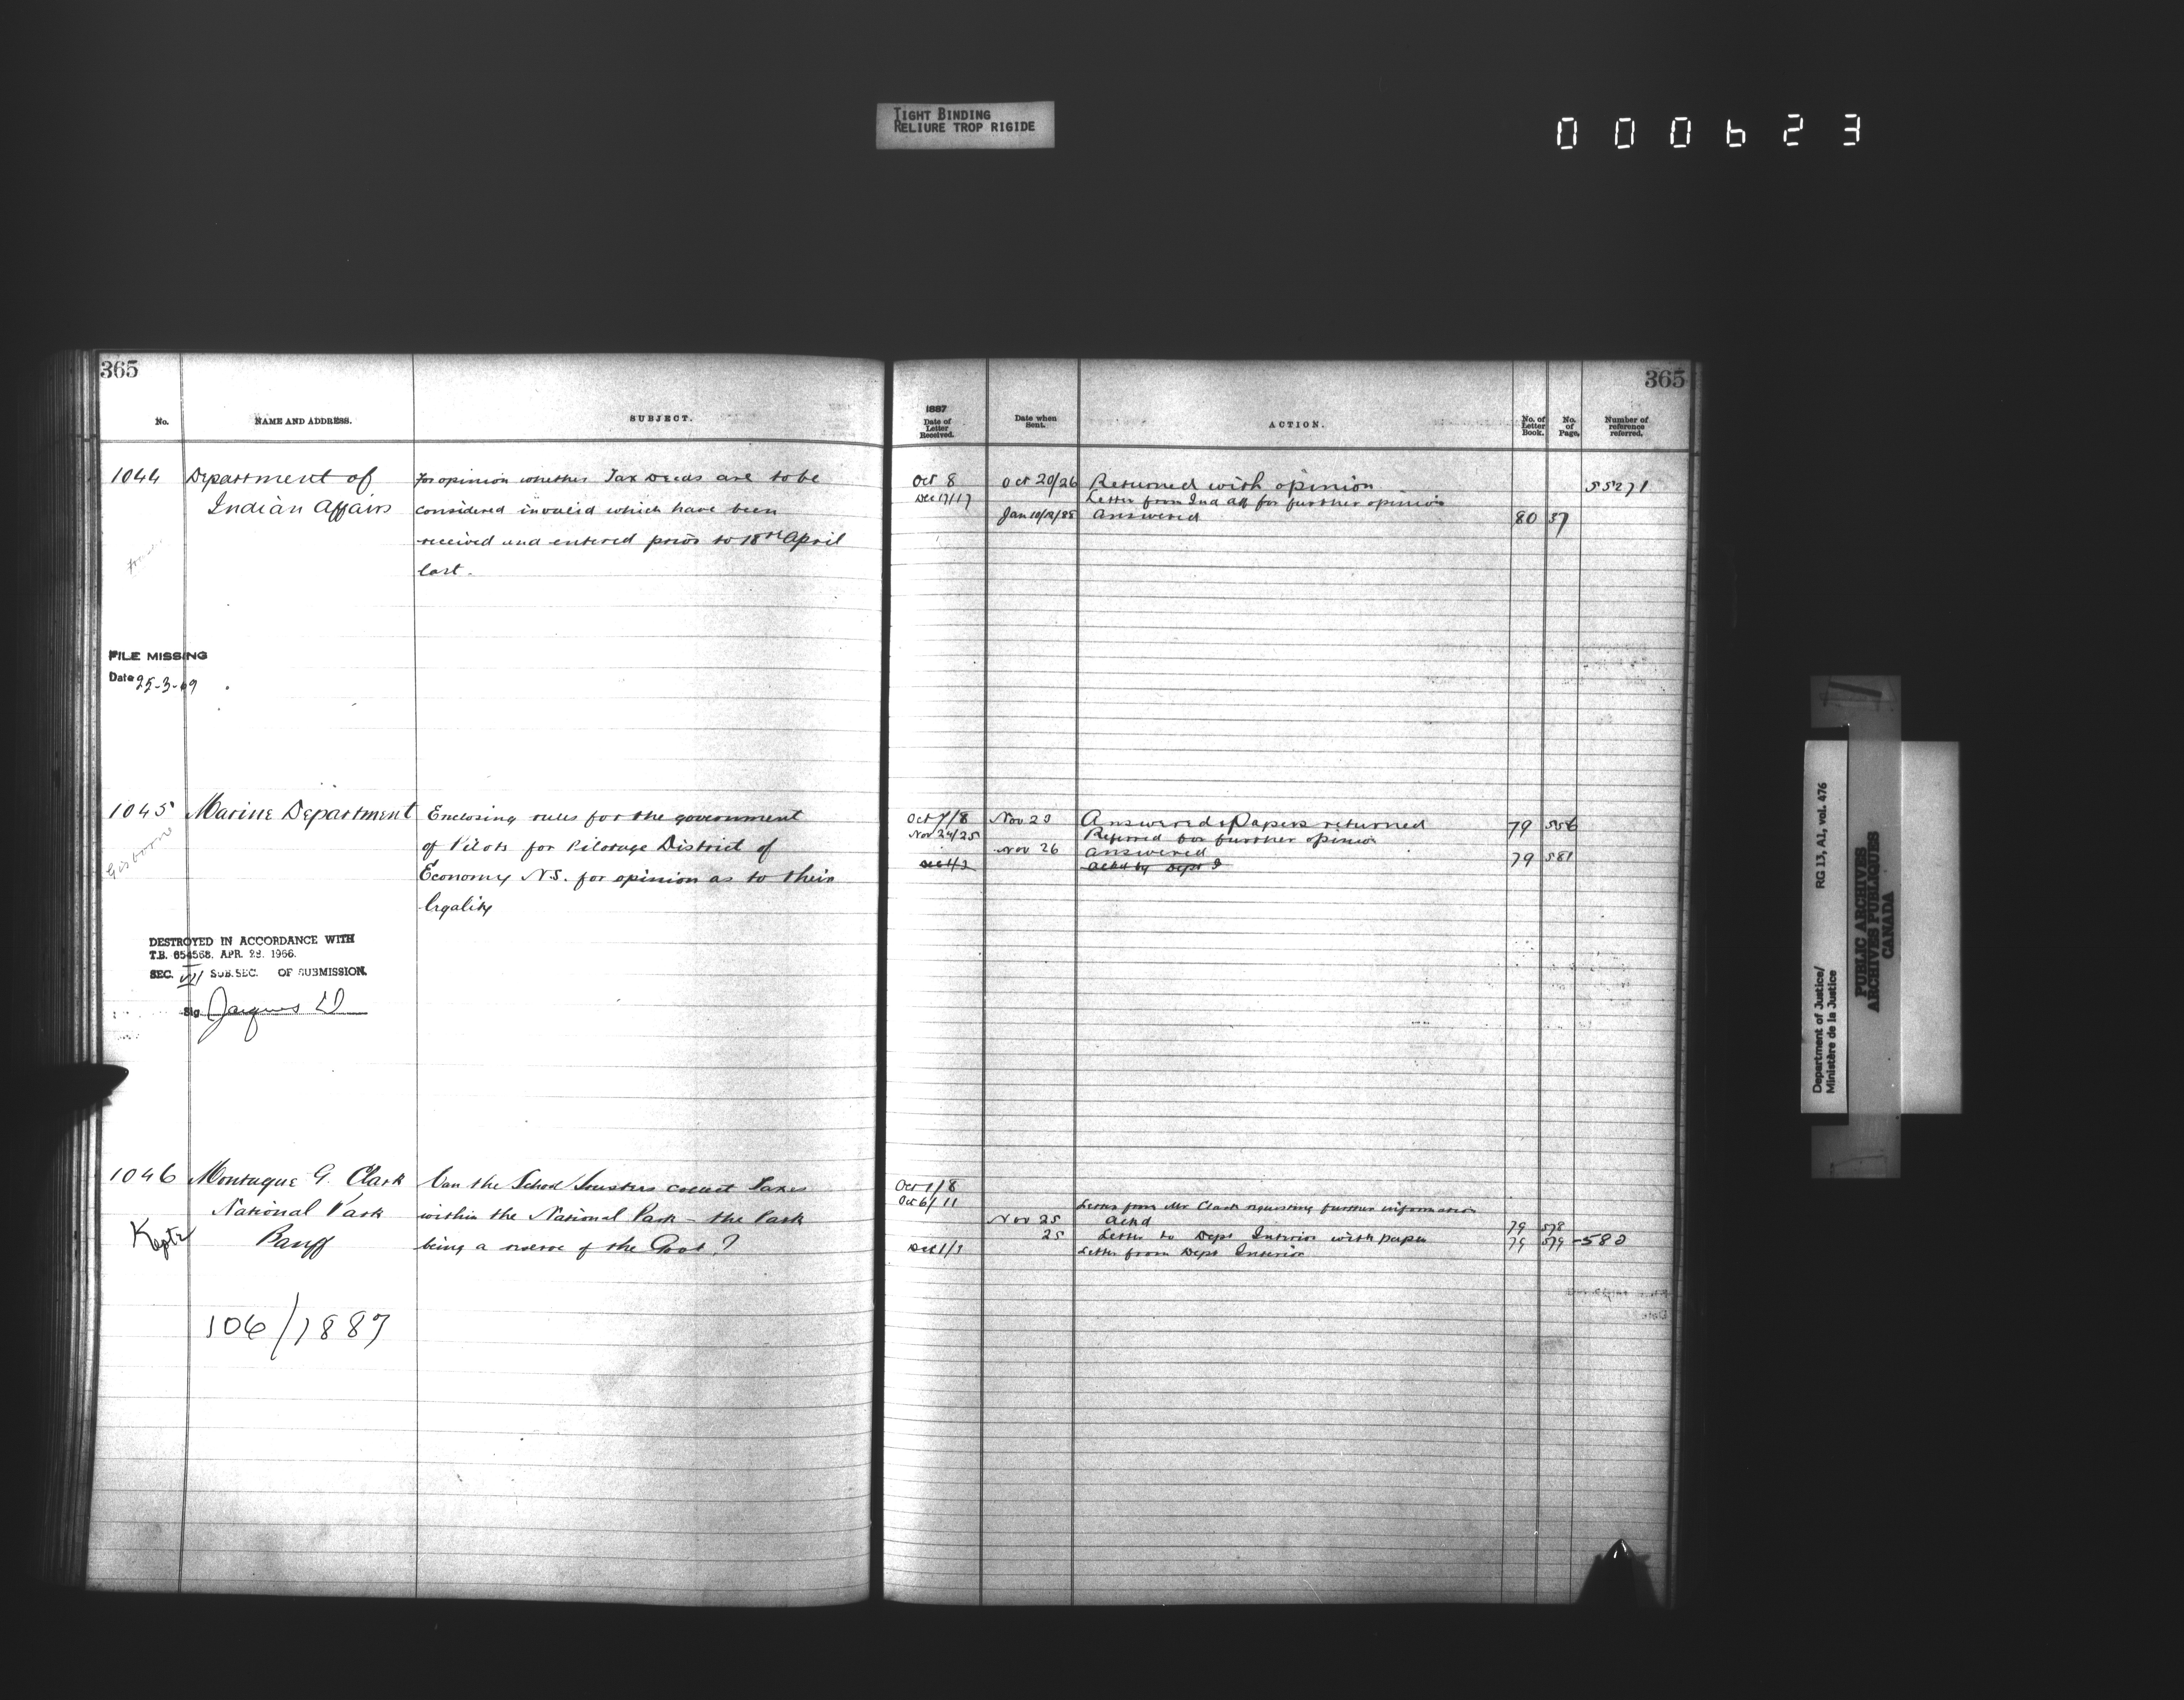 TIGHT BINDING
RELIURE TROP RIGIDE
000623
365
No. NAME AND ADDRESS. SUBJECT.
1044 Department of For opinion whether Tax Deeds are to be
Indian Affairs considered invalid which have been
received and entered prior to 18th April
last.
FILE MISSING
Date 25-3-69
1045 Marine Department Enclosing rules for the government
Gisborne of Pilots for Pilotage District of
Economy N.S. for opinion as to their
legality
DESTROYED IN ACCORDANCE WITH
T.B. 654568. APR. 29. 1966.
SEC. VII SUB.SEC. OF SUBMISSION.
Sig. Jacques
1046 Montague G. Clark Can the School Trustees collect Taxes
National Park within the National Park - the Park
Kept Banff being a reserve of the Govt.?
106/1887
365
1887
Date of Letter Received. Date when Sent. ACTION. No. of Letter Book. No. of Page. Number of reference referred.
Oct 8 Oct 20/26 Returned with opinion 55271
Dec 17/17 Letter from Ind Aff for further opinion
Jan 10/12/88 Answered 80 37
Oct 7/8 Nov 23 Answered & Papers returned 79 556
Nov 24/25 Referred for further opinion
Nov 26 Answered 79 581
Dec 1/2 Ackd by Dept I
Oct 1/8
Oct 6/11 Letter from Mr Clark requesting further information
Nov 25 Ackd 79 578
25 Letter to Dept Interior with paper 79 579-580
Dec 1/3 Letter from Dept Interior
Department of Justice/
Ministère de la Justice
RG 13, A1, vol. 476
PUBLIC ARCHIVES
ARCHIVES PUBLIQUES
CANADA